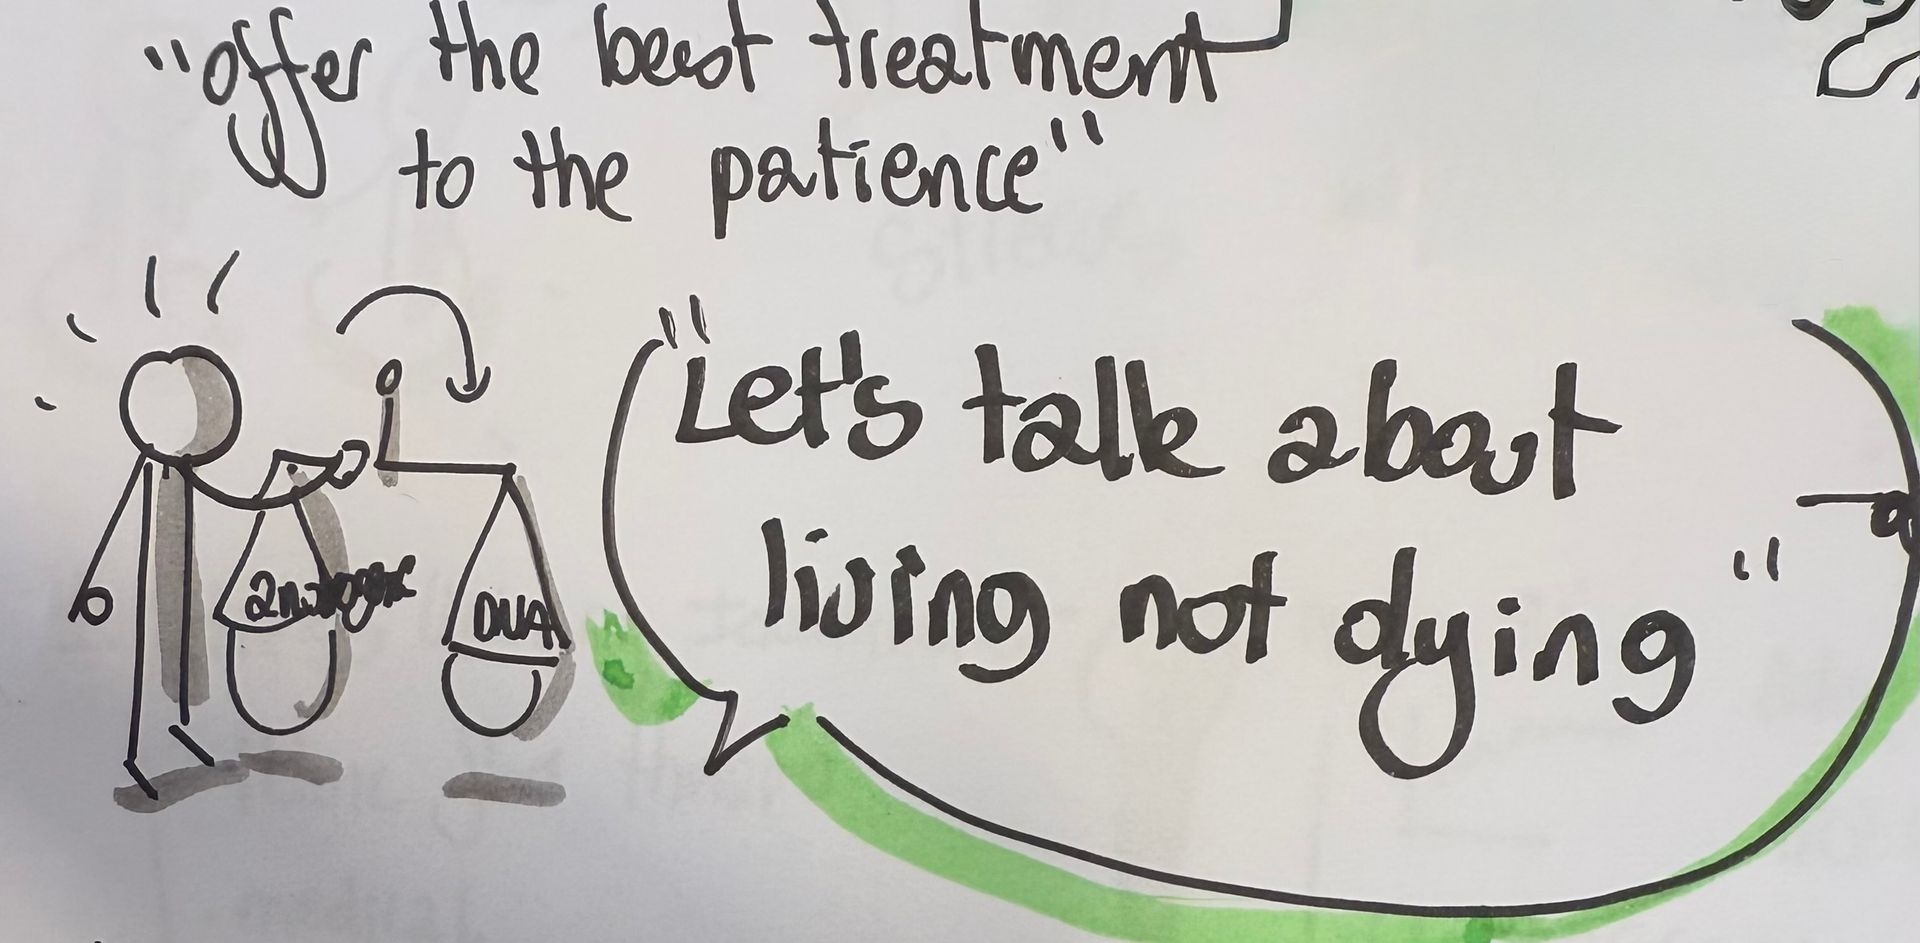 "offer the best treatment
to the patience"
"Let's talk about
living not dying"
DNA